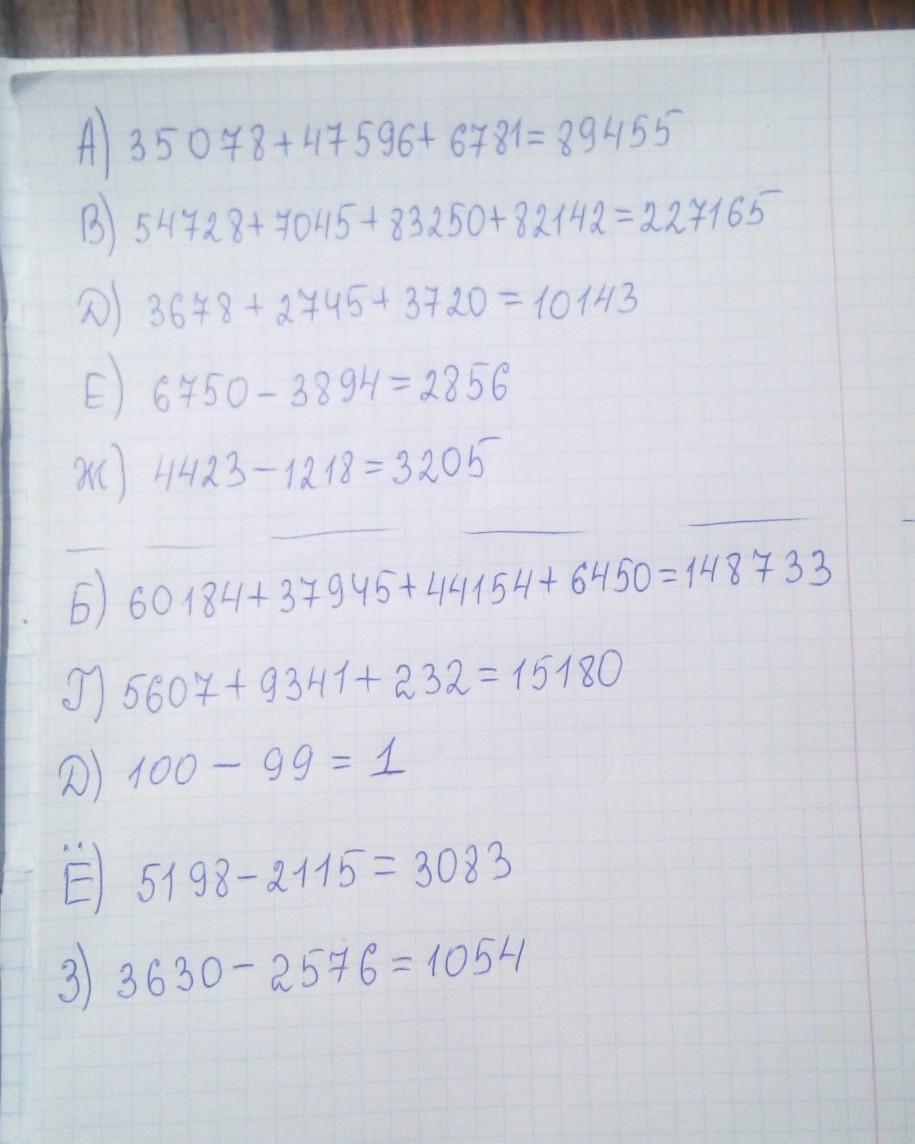 А) 35078+47596+6781=89455
В) 54728+7045+83250+82142=227165
Д) 3678+2745+3720=10143
Е) 6750-3894=2856
Ж) 4423-1218=3205
Б) 60184+37945+44154+6450=148733
Г) 5607+9341+232=15180
Д) 100-99=1
Ё) 5198-2115=3083
З) 3630-2576=1054